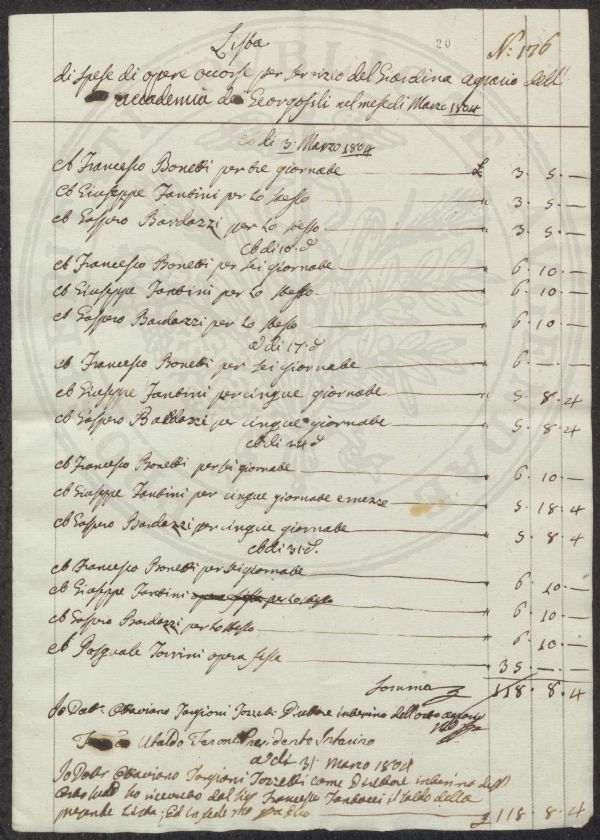 20
N: 176
Lista
di spese di opere occorse per servizio del Giardino agrario dell'
accademia de Georgofili nel mese di Marzo 1804
A di 3. Marzo 1804
A Francesco Bonetti per tre giornate £ 3. 5. —
A Giuseppe Fantini per lo stesso 3. 5. —
A Gaspero Bardazzi per lo stesso 3. 5. —
A di 10. d.
A Francesco Bonetti per sei giornate 6. 10. —
A Giuseppe Fantini per lo stesso 6. 10. —
A Gaspero Bardazzi per lo stesso 6. 10. —
A di 17. d.
A Francesco Bonetti per sei giornate 6. — . —
A Giuseppe Fantini per cinque giornate 5. 8. 4
A Gaspero Bardazzi per cinque giornate 5. 8. 4
A di 24 d.
A Francesco Bonetti per sei giornate 6. 10. —
A Giuseppe Fantini per cinque giornate e mezzo 5. 18. 4
A Gaspero Bardazzi per cinque giornate 5. 8. 4
A di 31 d.
A Francesco Bonetti per sei giornate 6. 10. —
A Giuseppe Fantini per lo stesso 6. 10. —
A Gaspero Bardazzi per lo stesso 6. 10. —
A Pasquale Torrini opera fissa 35. — . —
Somma 118. 8. 4
Io Dott. Ottaviano Targioni Tozzetti Direttore interino dell'orto agrario
Ubaldo Feroni Presidente Interino
A di 31 Marzo 1804
Io Dott. Ottaviano Targioni Tozzetti come Direttore interino dell'
Orto sudd. ho ricevuto dal Sig. Francesco il saldo della
presente Lista; Ed in fede mano propria £ 118. 8. 4